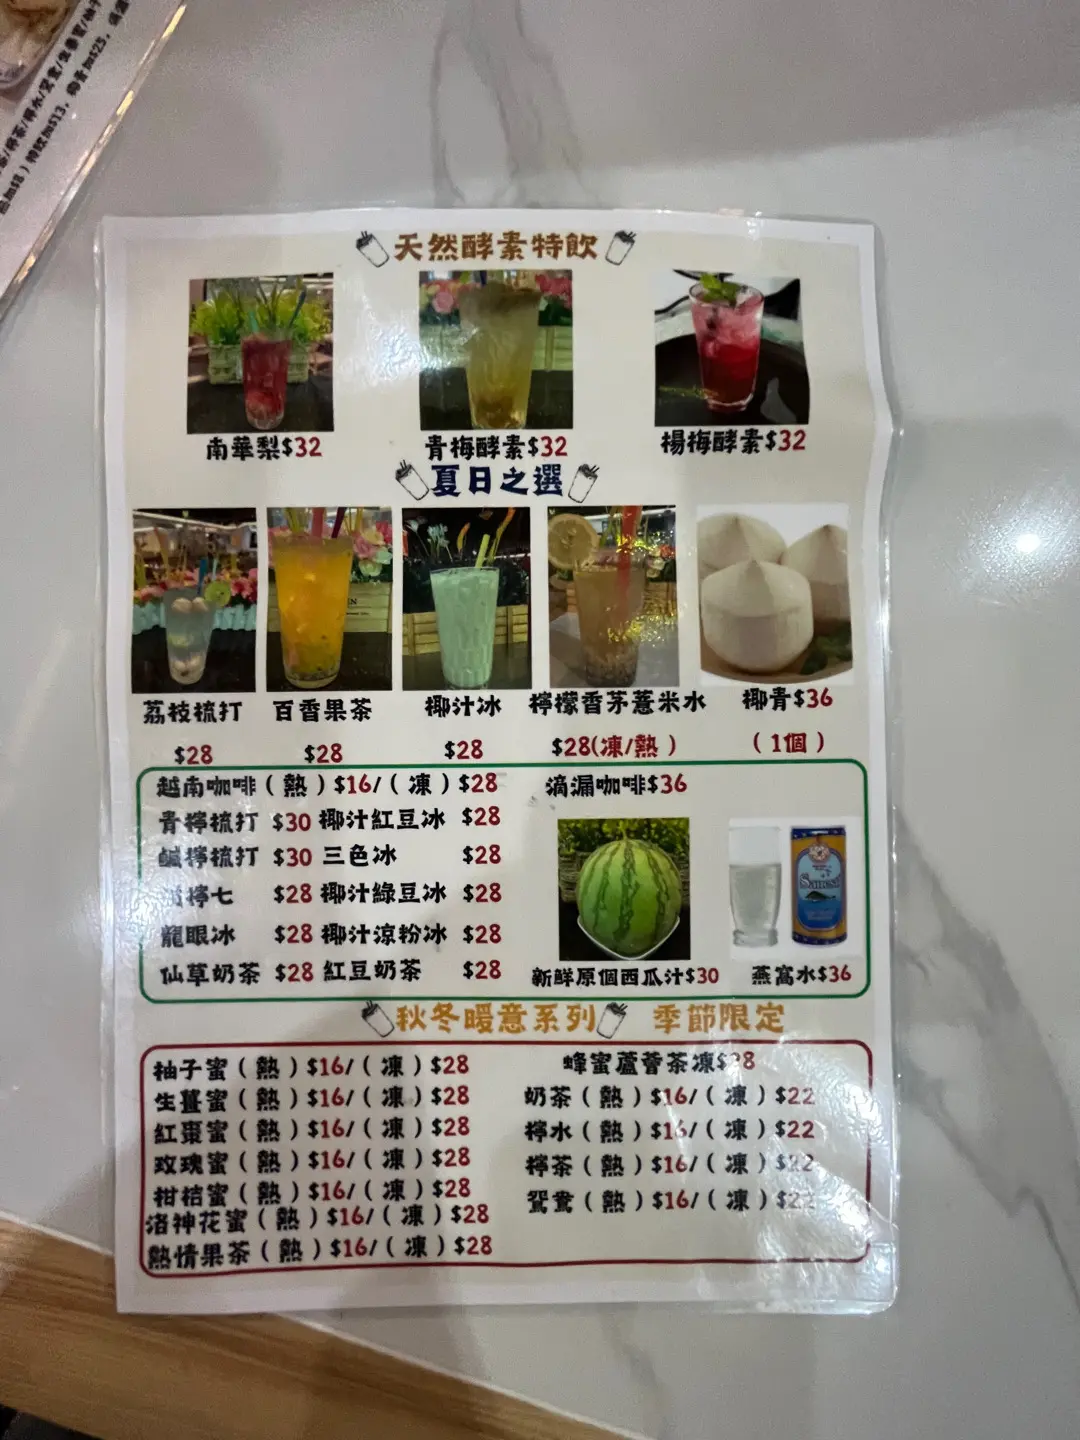 天然酵素特飲
南華梨$32
青梅酵素$32
楊梅酵素$32
夏日之選
荔枝梳打
$28
百香果茶
$28
椰汁冰
$28
檸檬香茅薏米水
$28(凍/熱)
椰青$36
(1個)
越南咖啡(熱)$16/(凍)$28
滴漏咖啡$36
青檸梳打 $30 椰汁紅豆冰 $28
鹹檸梳打 $30 三色冰 $28
檸七 $28 椰汁綠豆冰 $28
龍眼冰 $28 椰汁涼粉冰 $28
仙草奶茶 $28 紅豆奶茶 $28
新鮮原個西瓜汁$30
燕窩水$36
秋冬暖意系列 季節限定
柚子蜜(熱)$16/(凍)$28
生薑蜜(熱)$16/(凍)$28
紅棗蜜(熱)$16/(凍)$28
玫瑰蜜(熱)$16/(凍)$28
柑桔蜜(熱)$16/(凍)$28
洛神花蜜(熱)$16/(凍)$28
熱情果茶(熱)$16/(凍)$28
蜂蜜蘆薈茶凍$28
奶茶(熱)$16/(凍)$22
檸水(熱)$16/(凍)$22
檸茶(熱)$16/(凍)$22
鴛鴦(熱)$16/(凍)$22